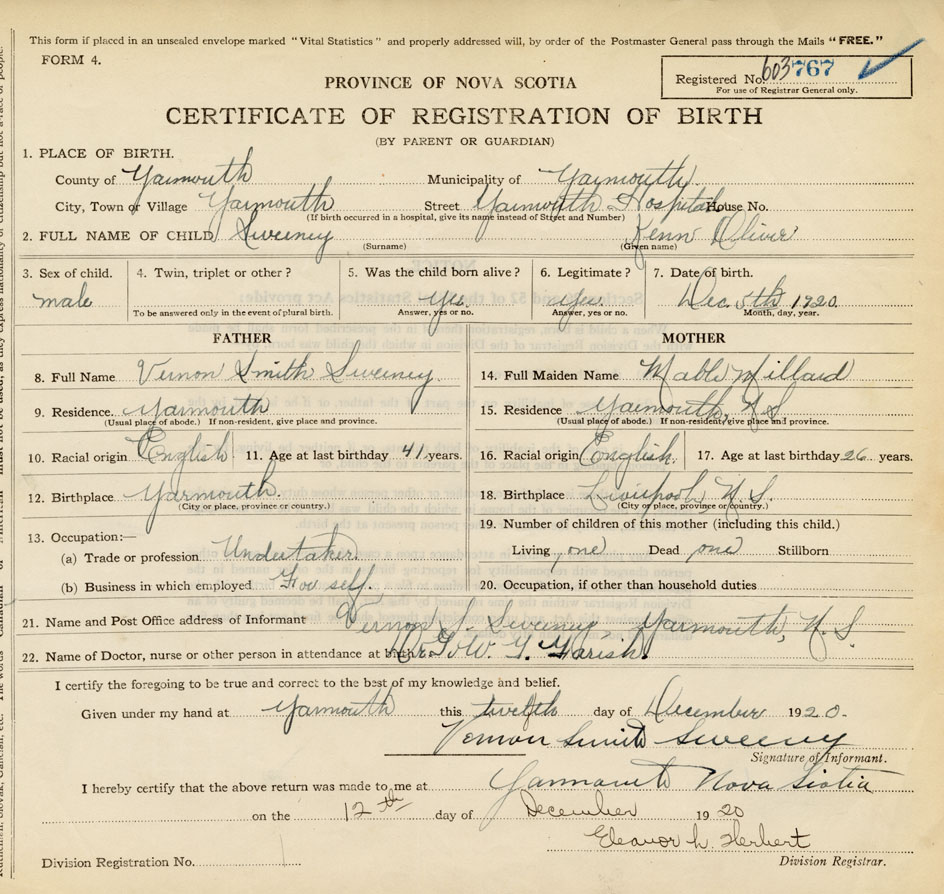 This form if placed in an unsealed envelope marked "Vital Statistics" and properly addressed will, by order of the Postmaster General pass through the Mails "FREE."
FORM 4.
Registered No. 603767
For use of Registrar General only.
PROVINCE OF NOVA SCOTIA
CERTIFICATE OF REGISTRATION OF BIRTH
(BY PARENT OR GUARDIAN)
1. PLACE OF BIRTH.
County of Yarmouth Municipality of Yarmouth
City, Town of Village Yarmouth Street Yarmouth Hospital House No.
(If birth occurred in a hospital, give its name instead of Street and Number)
2. FULL NAME OF CHILD Sweeney Kenn Oliver
(Surname) (Given name)
3. Sex of child. 4. Twin, triplet or other? 5. Was the child born alive? 6. Legitimate? 7. Date of birth.
male Yes. Yes Dec. 5th 1920.
To be answered only in the event of plural birth. Answer, yes or no. Answer, yes or no. Month, day, year.
FATHER
8. Full Name Vernon Smith Sweeney
9. Residence. Yarmouth
(Usual place of abode.) If non-resident, give place and province.
10. Racial origin English 11. Age at last birthday 41 years.
12. Birthplace Yarmouth.
(City or place, province or country.)
13. Occupation:—
(a) Trade or profession Undertaker.
(b) Business in which employed For self.
MOTHER
14. Full Maiden Name Mable Millard
15. Residence Yarmouth, N S
(Usual place of abode.) If non-resident, give place and province.
16. Racial origin English. 17. Age at last birthday 26 years.
18. Birthplace Liverpool N. S.
(City or place, province or country.)
19. Number of children of this mother (including this child.)
Living one Dead one Stillborn
20. Occupation, if other than household duties
21. Name and Post Office address of Informant Vernon S. Sweeney Yarmouth, N. S
22. Name of Doctor, nurse or other person in attendance at birth. Farish.
I certify the foregoing to be true and correct to the best of my knowledge and belief.
Given under my hand at Yarmouth this twelfth day of December 1920.
Vernon Smith Sweeney
Signature of Informant.
I hereby certify that the above return was made to me at Yarmouth Nova Scotia
on the 12th day of December 1920
Eleanor L. Herbert
Division Registration No. Division Registrar.